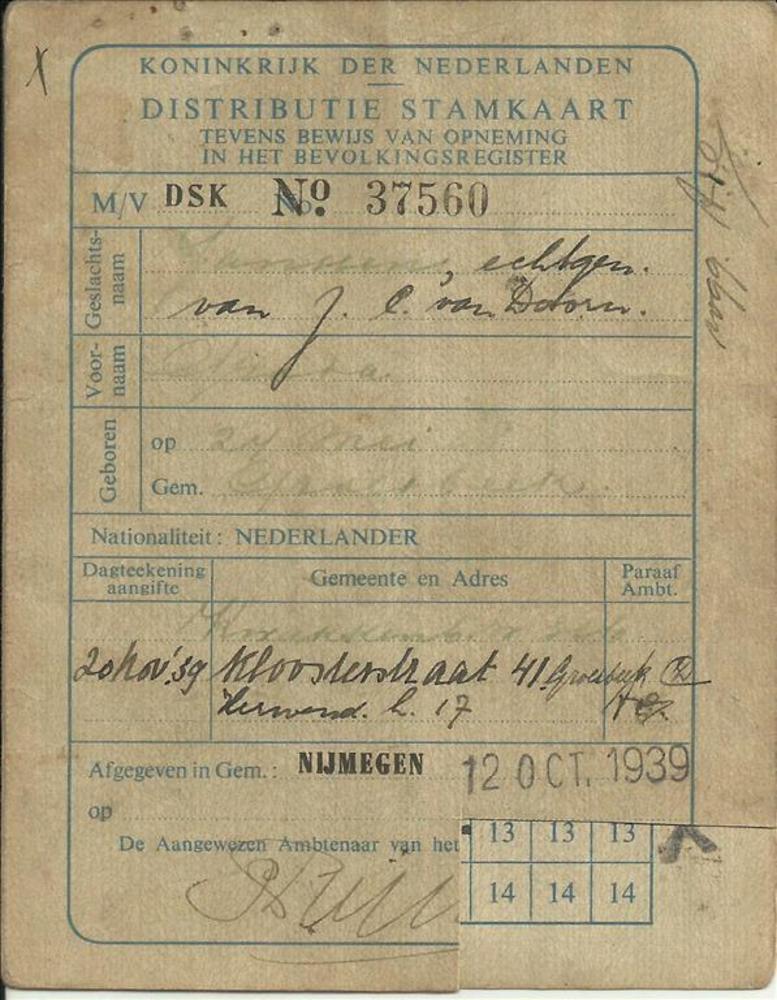 KONINKRIJK DER NEDERLANDEN
DISTRIBUTIE STAMKAART
TEVENS BEWIJS VAN OPNEMING
IN HET BEVOLKINGSREGISTER
M/V DSK No. 37560
Geslachts-
naam
, echtgen.
van J. C. van Doorn.
Voor-
naam
Geboren
op 24 Mei
Gem.
Nationaliteit: NEDERLANDER
Dagteekening
aangifte
Gemeente en Adres
Paraaf
Ambt.
20 Nov. '39 Kloosterstraat 41 Groesbeek
h. 17
Afgegeven in Gem.: NIJMEGEN
12 OCT. 1939
op
De Aangewezen Ambtenaar van het
13 13 13
14 14 14